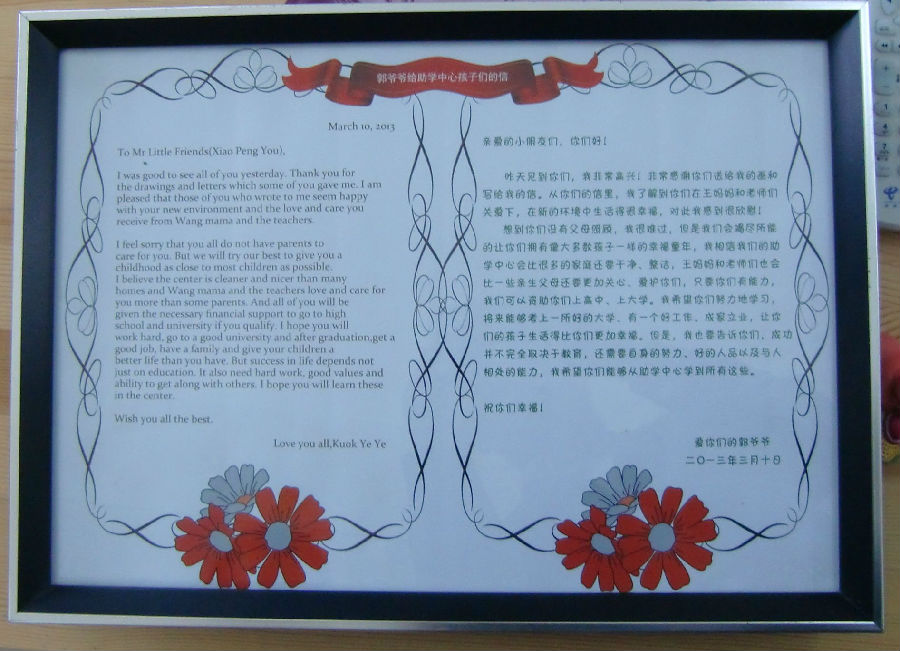 郭爷爷给助学中心孩子们的信
March 10, 2013
To Mr Little Friends(Xiao Peng You),
I was good to see all of you yesterday. Thank you for
the drawings and letters which some of you gave me. I am
pleased that those of you who wrote to me seem happy
with your new environment and the love and care you
receive from Wang mama and the teachers.
I feel sorry that you all do not have parents to
care for you. But we will try our best to give you a
childhood as close to most children as possible.
I believe the center is cleaner and nicer than many
homes and Wang mama and the teachers love and care for
you more than some parents. And all of you will be
given the necessary financial support to go to high
school and university if you qualify. I hope you will
work hard, go to a good university and after graduation,get a
good job, have a family and give your children a
better life than you have. But success in life depends not
just on education. It also need hard work, good values and
ability to get along with others. I hope you will learn these
in the center.
Wish you all the best.
Love you all,Kuok Ye Ye
亲爱的小朋友们，你们好！
昨天见到你们，我非常高兴！非常感谢你们送给我的画和
写给我的信。从你们的信里，我了解到你们在王妈妈和老师们
关爱下，在新的环境中生活得很幸福，对此我感到很欣慰！
想到你们没有父母照顾，我很难过，但是我们会竭尽所能
的让你们拥有像大多数孩子一样的幸福童年，我相信我们的助
学中心会比很多的家庭还要干净、整洁，王妈妈和老师们也会
比一些亲生父母还要更加关心、爱护你们，只要你们有能力，
我们可以资助你们上高中、上大学。我希望你们努力地学习，
将来能够考上一所好的大学、有一个好工作，成家立业，让你
们的孩子生活得比你们更加幸福。但是，我也要告诉你们，成功
并不完全取决于教育，还需要自身的努力、好的人品以及与人
相处的能力，我希望你们能够从助学中心学到所有这些。
祝你们幸福！
爱你们的郭爷爷
二〇一三年三月十日